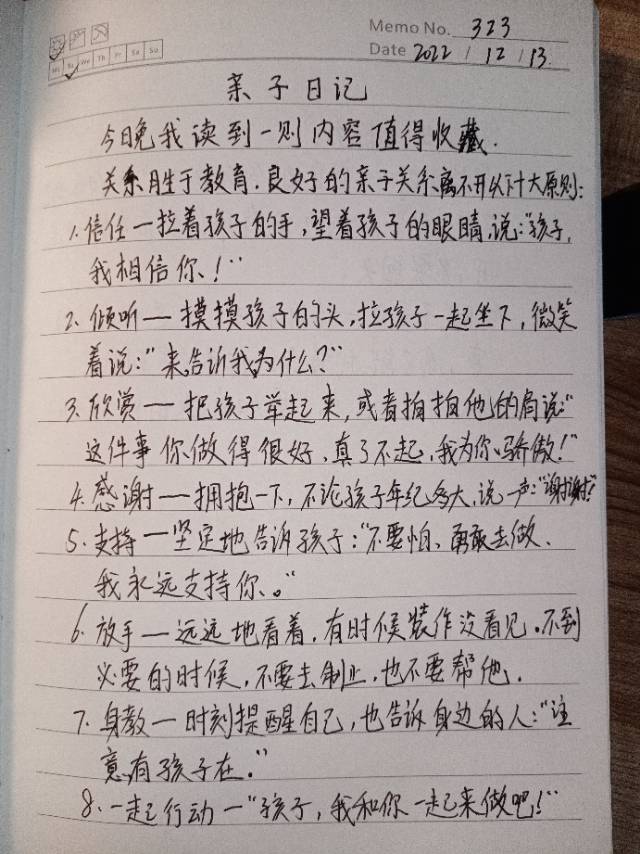 Memo No. 323
Mo Tu We Th Fr Sa Su
Date 2022 / 12 / 13.
亲子日记
今日晚我读到一则内容值得收藏.
关系胜于教育.良好的亲子关系离不开以下十大原则:
1.信任一拉着孩子的手,望着孩子的眼睛,说:"孩子,
我相信你!"
2.倾听一摸摸孩子的头,拉孩子一起坐下,微笑
着说:"来告诉我为什么?"
3.欣赏一把孩子举起来,或者拍拍他的肩说:"
这件事你做得很好,真了不起,我为你骄傲!"
4.感谢一拥抱一下,不论孩子年纪多大,说一声:"谢谢!"
5.支持一坚定地告诉孩子:"不要怕、勇敢去做.
我永远支持你。"
6.放手一远远地看着,有时候装作没看见。不到
必要的时候,不要去制止,也不要帮他.
7.身教一时刻提醒自己,也告诉身边的人:"注
意,有孩子在."
8.一起行动一"孩子,我和你一起来做吧!"